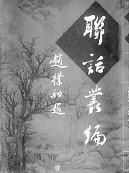 聯話叢編
趙樸初題